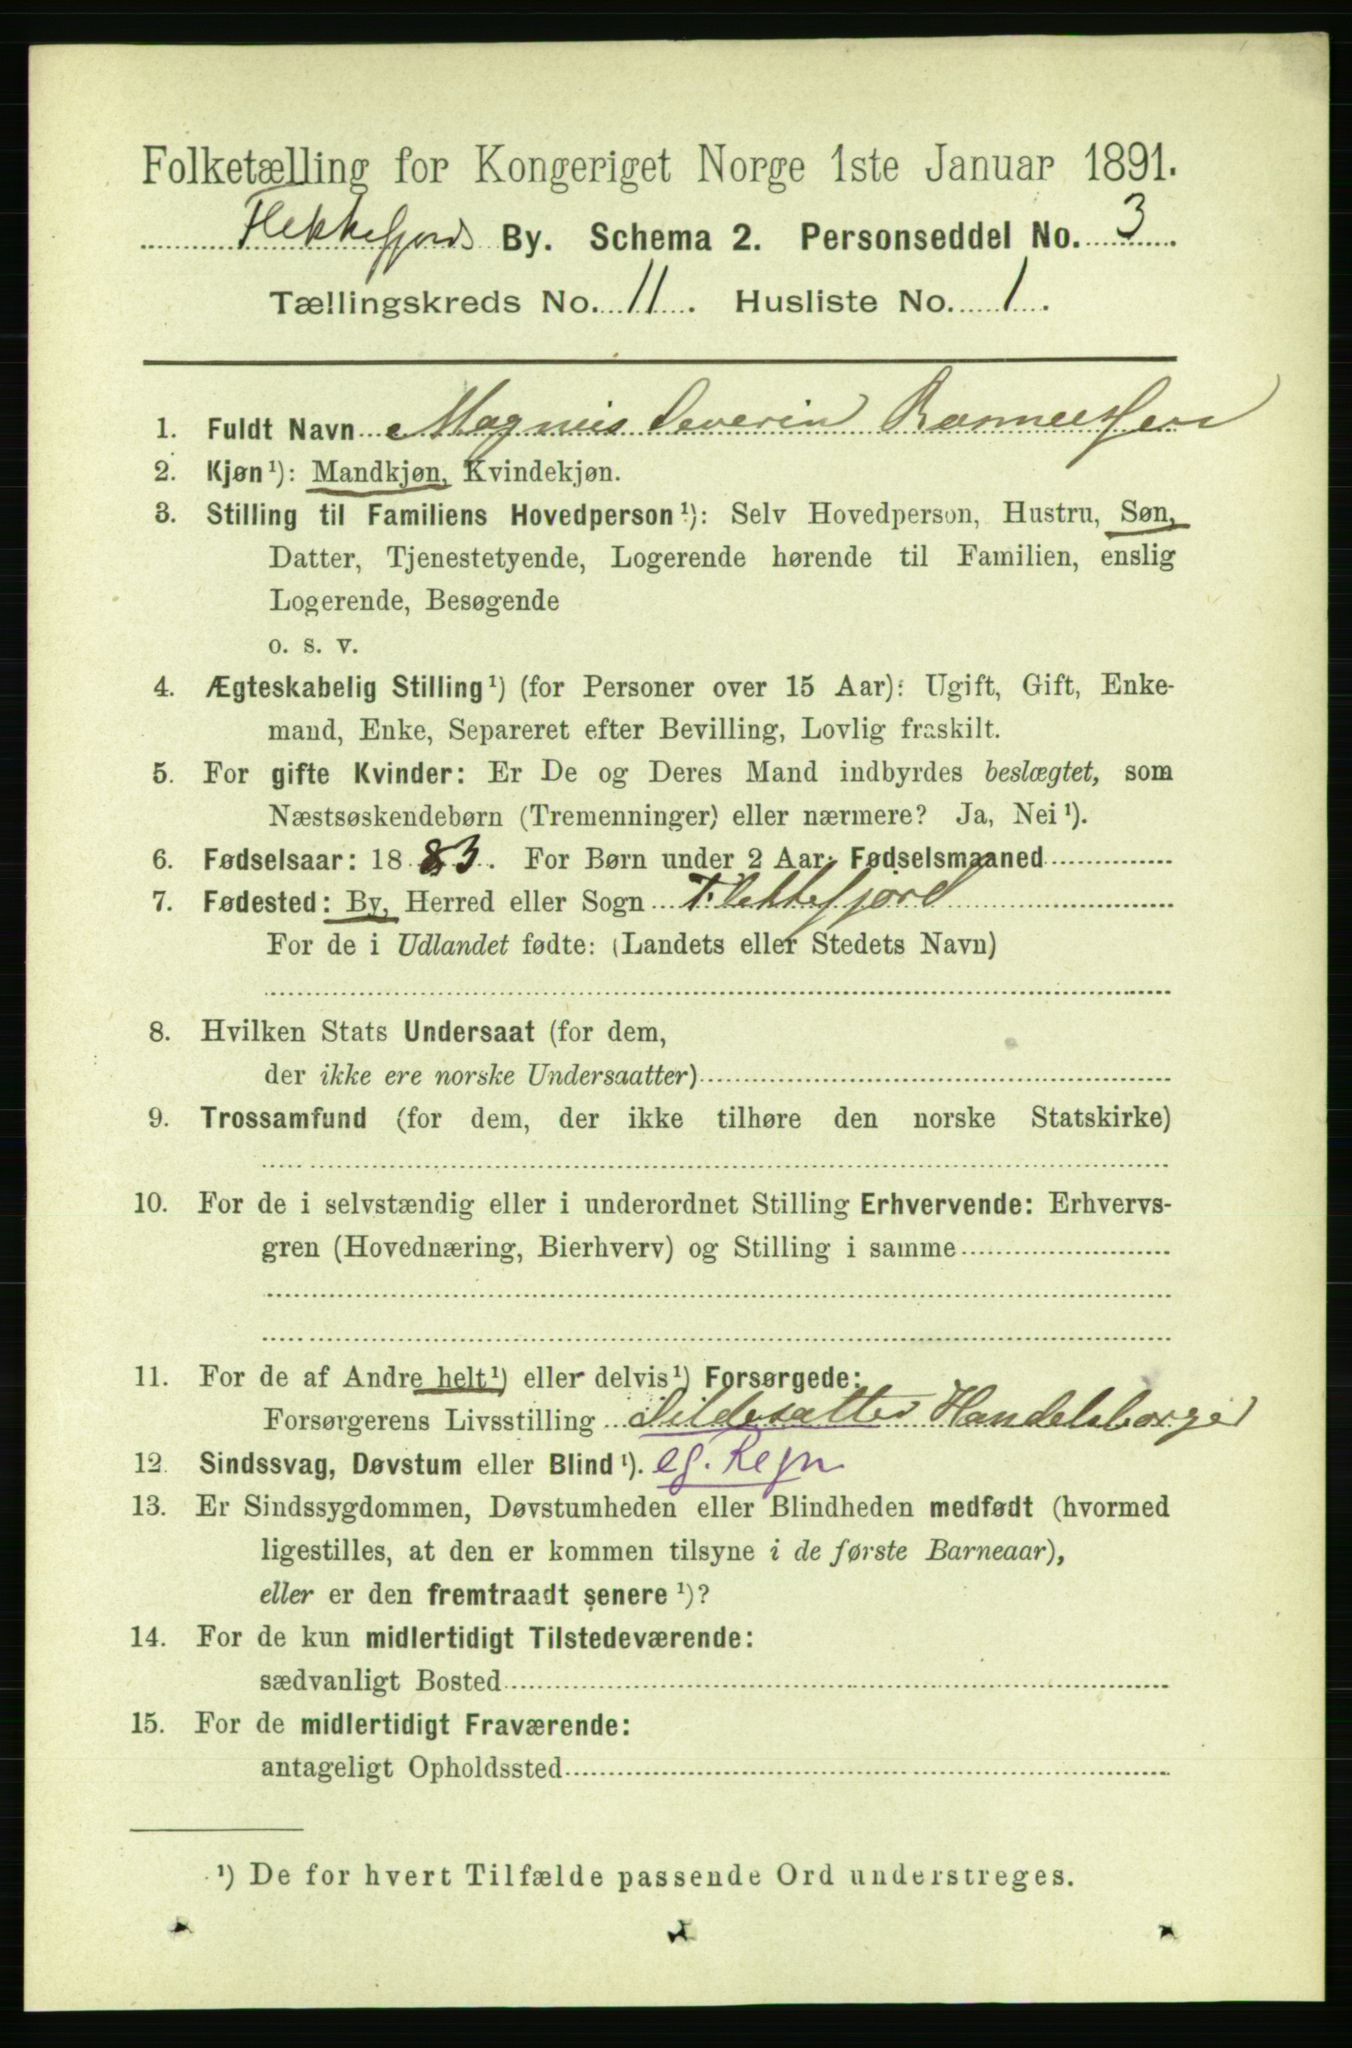 Folketælling for Kongeriget Norge 1ste Januar 1891.
Flekkefjords By. Schema 2. Personseddel No. 3.
Tællingskreds No. 11. Husliste No. 1.
1. Fuldt Navn Magnus Severin Rasmussen
2. Kjøn ¹): Mandkjøn, Kvindekjøn.
3. Stilling til Familiens Hovedperson ¹): Selv Hovedperson, Hustru, Søn,
Datter, Tjenestetyende, Logerende hørende til Familien, enslig
Logerende, Besøgende
o. s. v.
4. Ægteskabelig Stilling ¹) (for Personer over 15 Aar): Ugift, Gift, Enke-
mand, Enke, Separeret efter Bevilling, Lovlig fraskilt.
5. For gifte Kvinder: Er De og Deres Mand indbyrdes beslægtet, som
Næstsøskendebørn (Tremenninger) eller nærmere? Ja, Nei ¹).
6. Fødselsaar: 1883. For Børn under 2 Aar: Fødselsmaaned
7. Fødested: By, Herred eller Sogn Flekkefjord
For de i Udlandet fødte: (Landets eller Stedets Navn)
8. Hvilken Stats Undersaat (for dem,
der ikke ere norske Undersaatter)
9. Trossamfund (for dem, der ikke tilhøre den norske Statskirke)
10. For de i selvstændig eller i underordnet Stilling Erhvervende: Erhvervs-
gren (Hovednæring, Bierhverv) og Stilling i samme
11. For de af Andre helt ¹) eller delvis ¹) Forsørgede:
Forsørgerens Livsstilling Sildesalter Handelsborger
12. Sindssvag, Døvstum eller Blind ¹). eg. Regn
13. Er Sindssygdommen, Døvstumheden eller Blindheden medfødt (hvormed
ligestilles, at den er kommen tilsyne i de første Barneaar),
eller er den fremtraadt senere ¹)?
14. For de kun midlertidigt Tilstedeværende:
sædvanligt Bosted
15. For de midlertidigt Fraværende:
antageligt Opholdssted
¹) De for hvert Tilfælde passende Ord understreges.